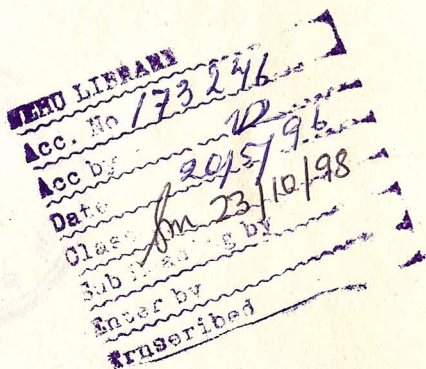 NEHU LIBRARY
Acc. No 173246
Acc by
Date 20/5/96
Class 23/10/98
Sub Heading by
Enter by
Trnscribed